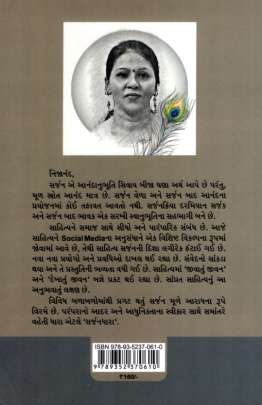 નિજાનંદ,
સર્જન એ આનંદાનુભૂતિ સિવાય બીજા ઘણા અર્થ આપે છે પરંતુ,
મૂળ સ્રોત આનંદ માત્ર છે. સર્જન વેળા અને સર્જન બાદ આનંદના
પ્રયોજનમાં કોઈ તફાવત આવતો નથી. સર્જનક્રિયા દરમિયાન સર્જક
અને સર્જન બાદ ભાવક એક સરખી સ્વાનુભૂતિના સહભાગી બને છે.
સાહિત્યને સમાજ સાથે સીધો અને પારંપારિક સંબંધ છે. આજે
સાહિત્યને Social Mediaના અનુસંધાને એક વિશિષ્ટ વિકલ્પના રૂપમાં
જોવામાં આવે છે, તેથી સાહિત્ય સર્જનની દિશા લગીરેક ફંટાઈ ગઈ છે.
નવા નવા પ્રયોગો અને પ્રવિધિઓ દાખલ થઈ રહ્યા છે. સંવેદનો સાંકડા
થયા અને તે પ્રસ્તુતિની ભવ્યતા વધી ગઈ છે. સાહિત્યમાં 'જીવાતું જીવન'
અને 'દેખાતું જીવન' બન્ને પ્રકટ થઈ રહ્યા છે. સાંપ્રત સાહિત્યનું આ
અનુભવાતું લક્ષણ છે.
વિવિધ ખળાખળોમાંથી પ્રગટ થતું સર્જન મૂળે આરાધના રૂપે
વિરમે છે. પરંપરાનો આદર અને આધુનિકતાના સ્વીકાર સાથે સમાંતરે
વહેતી ધારા એટલે 'સર્જનધારા'.
ISBN 978-93-5237-061-0
9 789352 370610
₹160/-